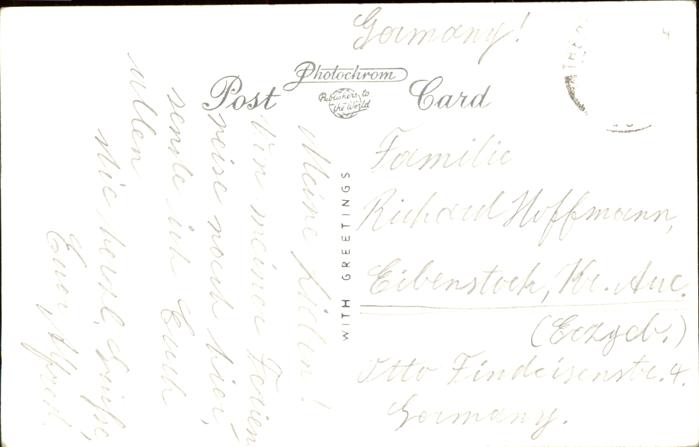 Germany!
Photochrom
Post Card
Publishers to
the World
WITH GREETINGS
Familie
Richard Hoffmann,
Eibenstock, Kr. Aue.
(Erzgeb.)
Otto Findeisenstr. 4.
Germany.
Meine Lieben!
Von meiner Ferien-
reise nach hier,
sende ich Euch
allen
die herzl. Grüße,
Euer Alfred.